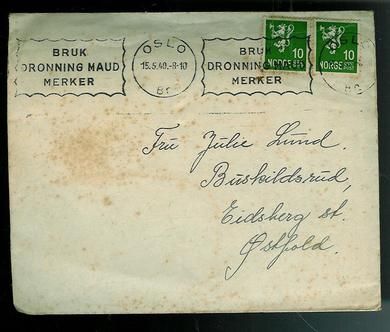 BRUK
DRONNING MAUD
MERKER
OSLO
15.5.40.-8-10
Br
BRUK
DRONNING MAUD
MERKER
10
NORGE
10
NORGE
OSLO
Fru Julie Lund.
Buskildsrud,
Eidsberg st.
Østfold.